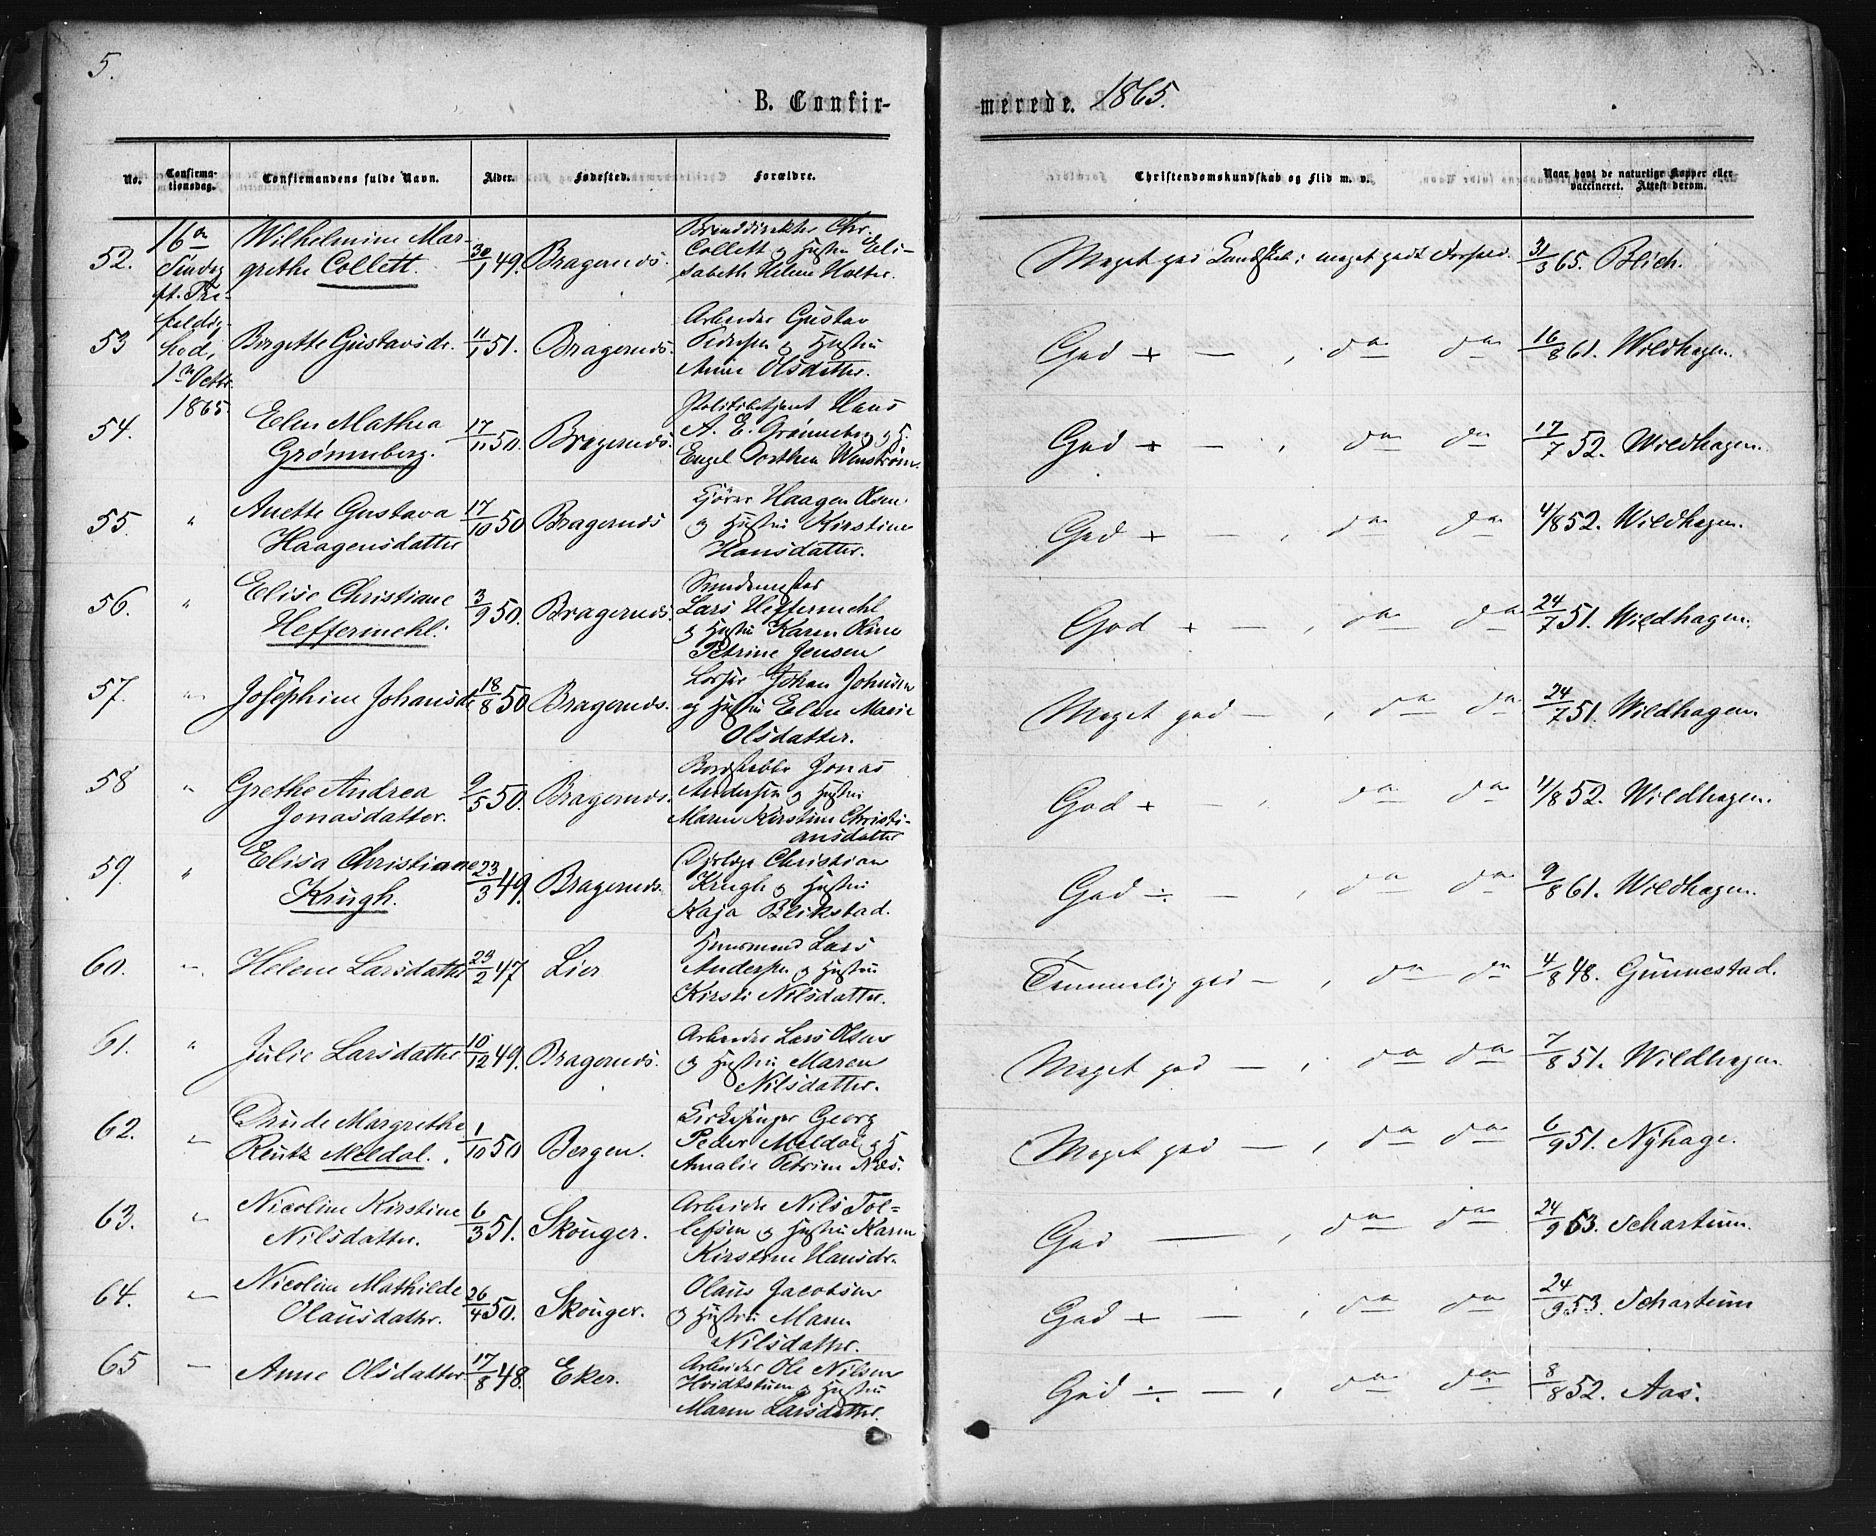 5.
B. Confir-
merede. 1865.
No.
Confirma-
tionsdag.
Confirmandens fulde Navn.
Alder.
Fødested.
Forældre.
Christendomskundskab og Flid m. v.
Naar havt de naturlige Kopper eller
vaccineret. Attest derom.
16de
Søndag
ft. Tre-
foldig-
hed,
1ste Octbr.
1865.
52.
Wilhelmine Mar-
grethe Collett.
30/1 49.
Bragernæs.
Branddirektør Chr.
Collett og Hustru Eli-
sabeth Helene Holter.
Meget god Kundskab; meget godt Forhold.
31/3 65. Blich.
53
Birgette Gustavsdr.
11/1 51.
Bragernæs.
Arbeider Gustav
Pedersen og Hustru
Anne Olsdatter.
God + — , do do
16/8 61. Wildhagen.
54.
Elen Mathea
Grønneberg.
17/11 50.
Bragernæs.
Politibetjent Hans
A. E. Grønneberg og H.
Engel Dorthea Wenstrøm.
God + — , do do
17/7 52. Wildhagen.
55.
"
Anette Gustava
Haagensdatter
17/10 50
Bragernæs
Kjører Haagen Olsen
og Hustru Kirstine
Hansdatter.
God + — , do do
4/8 52. Wildhagen.
56.
"
Elise Christiane
Heffermehl.
3/9 50.
Bragernæs.
Lars Heffermehl
og Hustru Karen Oline
Petrine Jensen
God + — , do do
24/7 51. Wildhagen.
57.
"
Josephine Johansd.
18/8 50.
Bragernæs.
Johan Johnsen
og Hustru Elen Marie
Olsdatter.
Meget god — , do do
24/7 51. Wildhagen.
58
"
Grethe Andrea
Jonasdatter.
9/5 50.
Bragernæs.
Bordstabler Jonas
Andersen og Hustru
Maren Kirstine Christi-
ansdatter
God + — , do do
4/8 52. Wildhagen.
59.
"
Elisa Christiane
Krugh.
23/3 49.
Bragernæs.
Christian
Krugh og Hustru
Kaja Blikstad.
God ÷ — , do do
9/8 61. Wildhagen.
60.
"
Helene Larsdatter
23/2 47
Lier
Huusmand Lars
Andersen og Hustru
Kirsti Nilsdatter.
Temmelig god — , do do
4/8 48. Gunnestad.
61.
"
Julie Larsdatter
10/12 49.
Bragernæs.
Arbeider Lars Olsen
og Hustru Maren
Nilsdatter.
Meget god — , do do
7/8 51. Wildhagen
62.
"
Drude Margrethe
Reutz Meldal.
1/10 50
Bergen.
Kirkesanger Georg
Peder Meldal og H.
Amalie Petrine
Meget god — , do do
6/9 51. Nyhage.
63.
"
Nicoline Kirstine
Nilsdatter.
6/3 51.
Skouger.
Arbeider Nils Tol-
lefsen og Hustru Karen
Kirstine Hansdr.
God — , do do
24/9 53. Schartum.
64.
"
Nicoline Mathilde
Olausdatter.
26/4 50.
Skouger.
Olaus Jacobsen
og Hustru Maren
Nilsdatter.
God + — , do do
24/9 53. Schartum
65
"
Anne Olsdatter
17/8 48.
Eker.
Arbeider Ole Nilsen
Hvidtstuen og Hustru
Maren Larsdatter.
God ÷ — , do do
8/8 52. Aas.